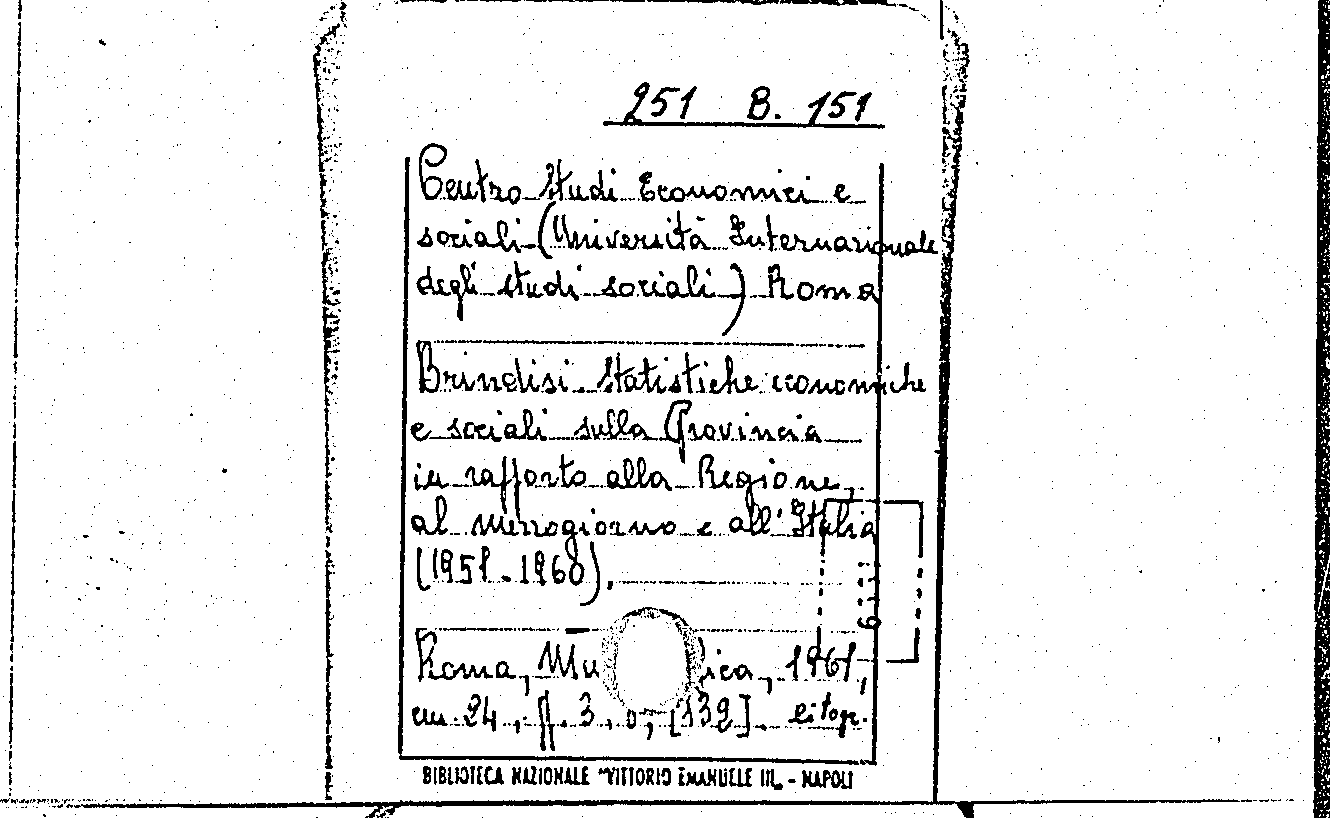 251 B. 151
Centro studi Economici e
sociali (Università Internazionale
degli studi sociali) Roma
Brindisi. Statistiche economiche
e sociali sulla Provincia
in rapporto alla Regione,
al mezzogiorno e all'Italia
(1951-1960).
Roma, 1961,
cm. 24, pp. 3, [132]. litogr.
BIBLIOTECA NAZIONALE "VITTORIO EMANUELE III„ - NAPOLI